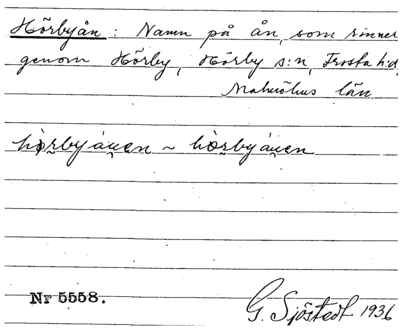 Hörbyån: Namn på ån, som rinner
genom Hörby, Hörby s:n, Frosta h:d,
Malmöhus län.
Nr 5558.
G. Sjöstedt 1936